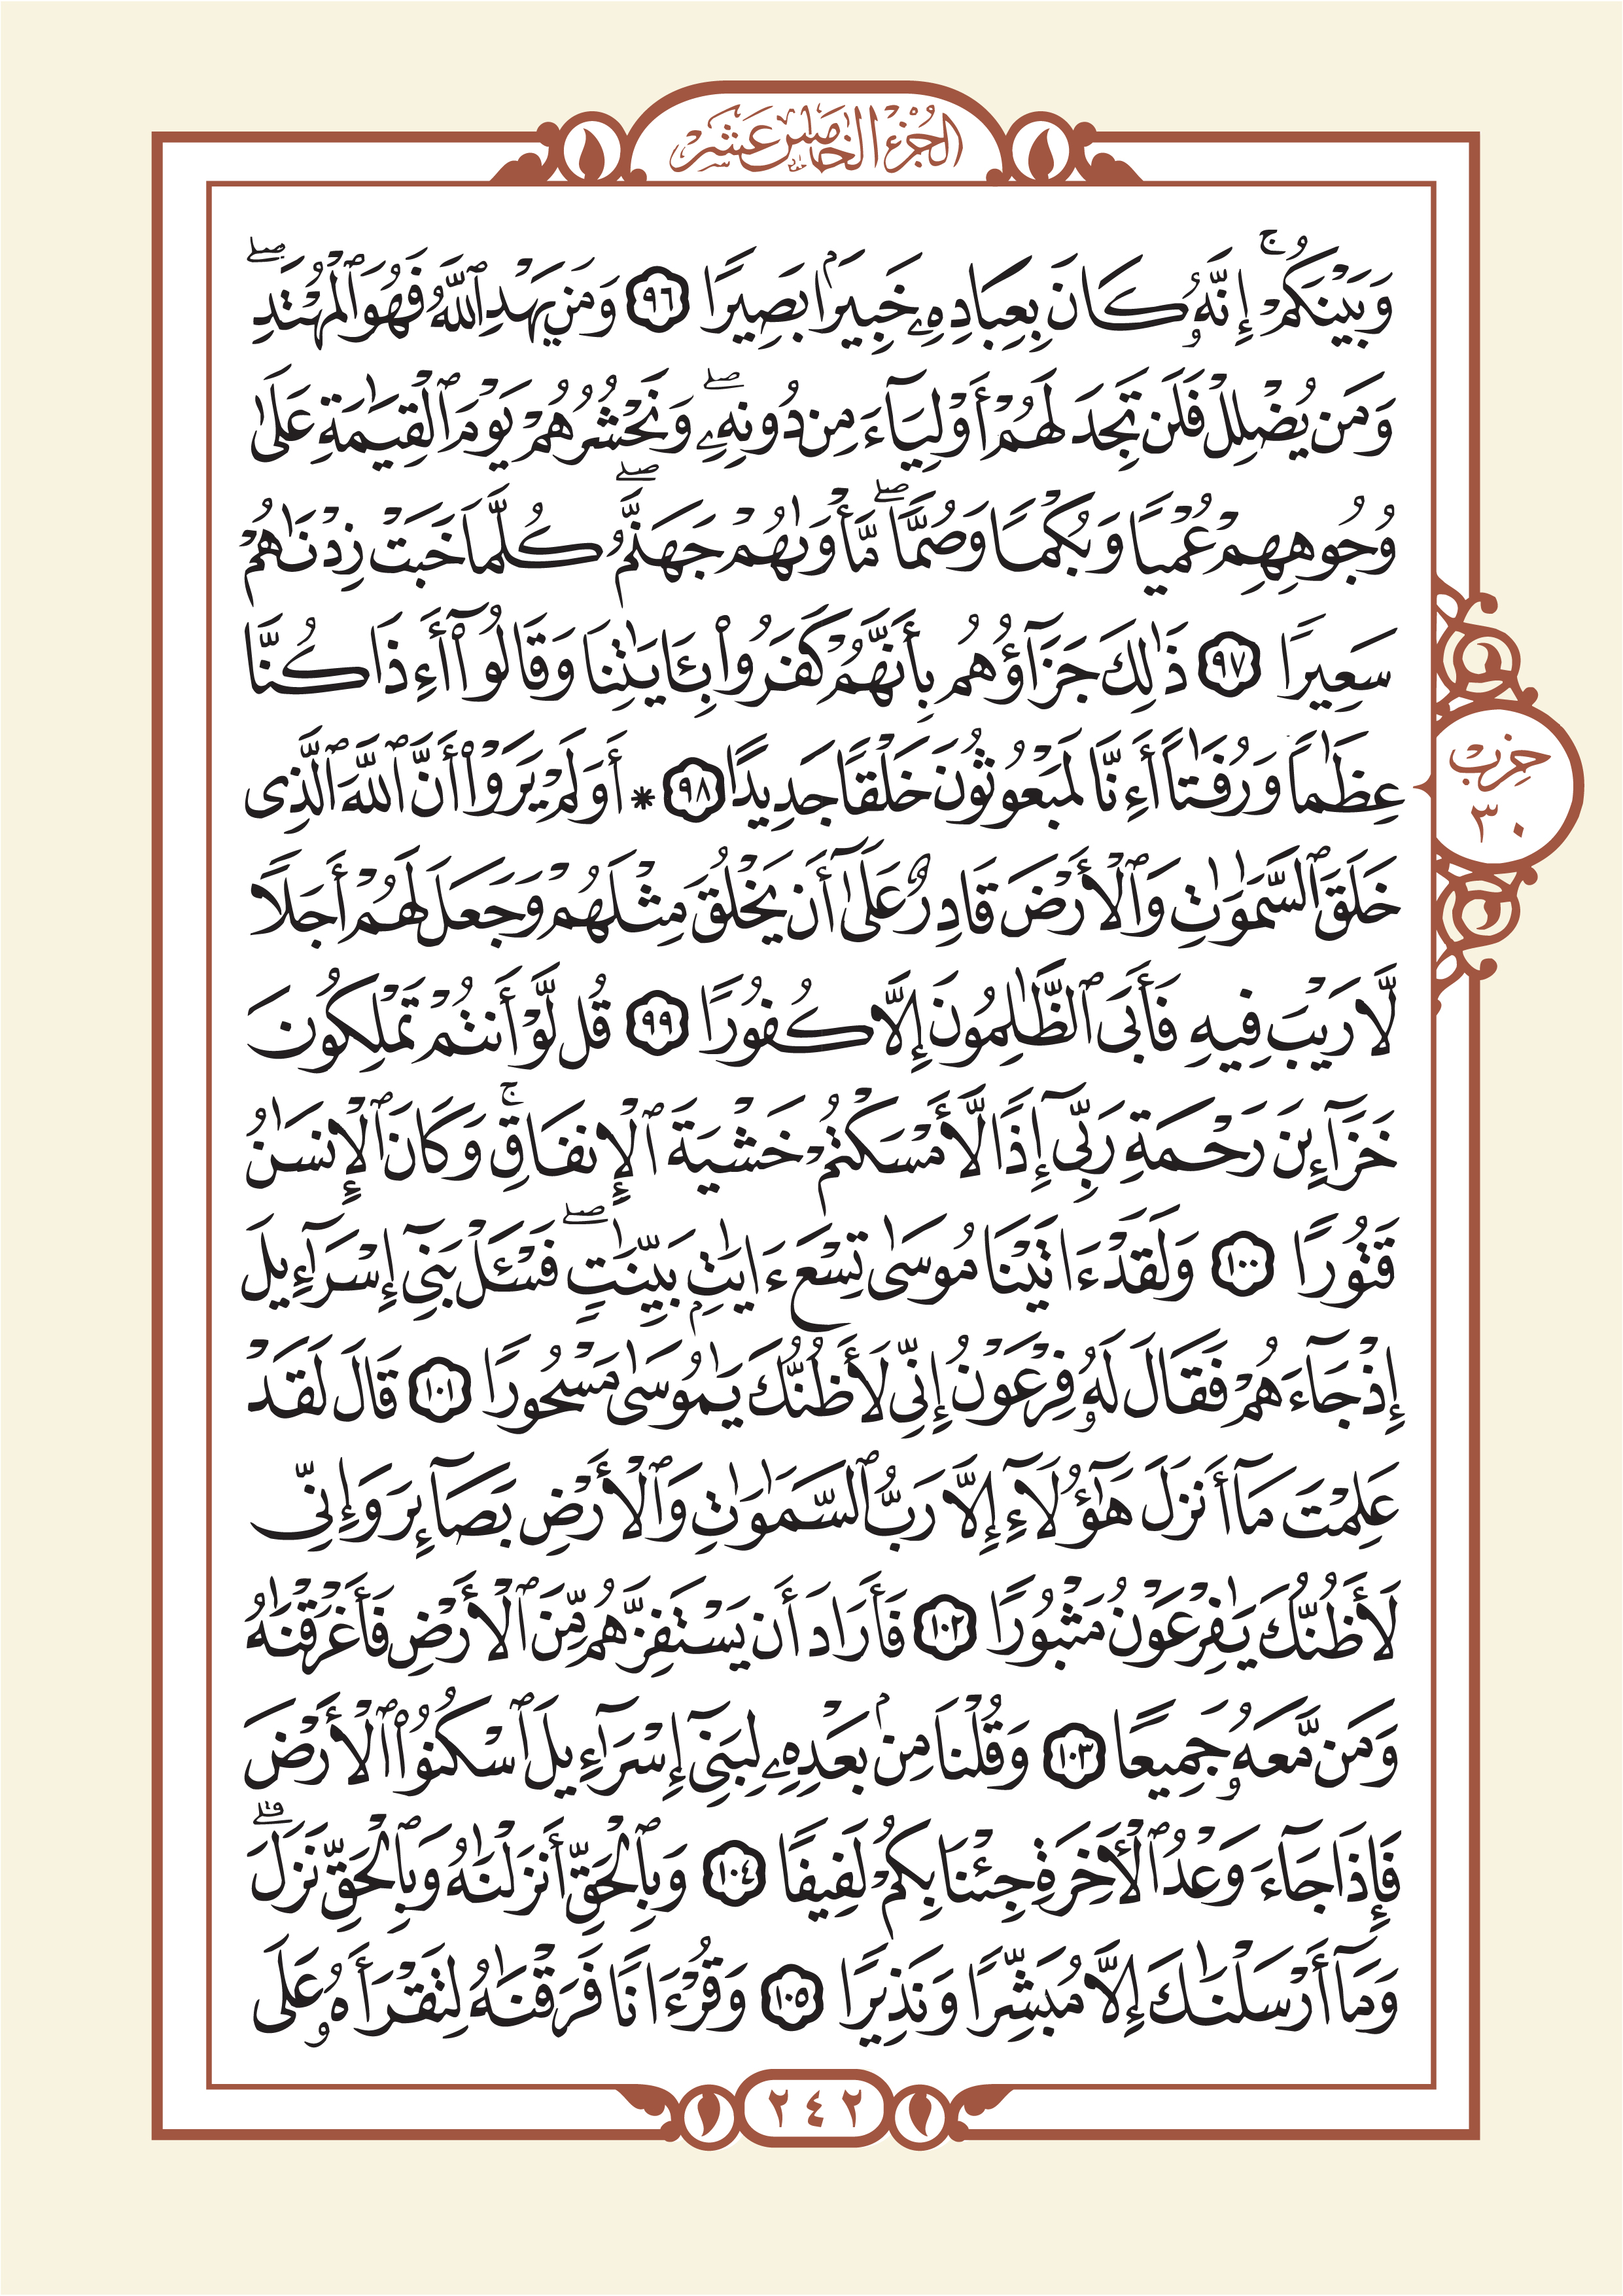 الجزء الخامس عشر
وَبَيْنَكُمْۚ إِنَّهُۥ كَانَ بِعِبَادِهِۦ خَبِيرَۢا بَصِيرًا ٩٦ وَمَن يَهْدِ ٱللَّهُ فَهُوَ ٱلْمُهْتَدِۖ
وَمَن يُضْلِلْ فَلَن تَجِدَ لَهُمْ أَوْلِيَآءَ مِن دُونِهِۦۖ وَنَحْشُرُهُمْ يَوْمَ ٱلْقِيَٰمَةِ عَلَىٰ
وُجُوهِهِمْ عُمْيًا وَبُكْمًا وَصُمًّاۖ مَّأْوَىٰهُمْ جَهَنَّمُۖ كُلَّمَا خَبَتْ زِدْنَٰهُمْ
سَعِيرًا ٩٧ ذَٰلِكَ جَزَآؤُهُم بِأَنَّهُمْ كَفَرُوا۟ بِـَٔايَٰتِنَا وَقَالُوٓا۟ أَءِذَا كُنَّا
عِظَٰمًا وَرُفَٰتًا أَءِنَّا لَمَبْعُوثُونَ خَلْقًا جَدِيدًا ٩٨ * أَوَلَمْ يَرَوْا۟ أَنَّ ٱللَّهَ ٱلَّذِى
خَلَقَ ٱلسَّمَٰوَٰتِ وَٱلْأَرْضَ قَادِرٌ عَلَىٰٓ أَن يَخْلُقَ مِثْلَهُمْ وَجَعَلَ لَهُمْ أَجَلًا
لَّا رَيْبَ فِيهِ فَأَبَى ٱلظَّٰلِمُونَ إِلَّا كُفُورًا ٩٩ قُل لَّوْ أَنتُمْ تَمْلِكُونَ
خَزَآئِنَ رَحْمَةِ رَبِّىٓ إِذًا لَّأَمْسَكْتُمْ خَشْيَةَ ٱلْإِنفَاقِۚ وَكَانَ ٱلْإِنسَٰنُ
قَتُورًا ١٠٠ وَلَقَدْ ءَاتَيْنَا مُوسَىٰ تِسْعَ ءَايَٰتِۭ بَيِّنَٰتٍۖ فَسْـَٔلْ بَنِىٓ إِسْرَٰٓءِيلَ
إِذْ جَآءَهُمْ فَقَالَ لَهُۥ فِرْعَوْنُ إِنِّى لَأَظُنُّكَ يَٰمُوسَىٰ مَسْحُورًا ١٠١ قَالَ لَقَدْ
عَلِمْتَ مَآ أَنزَلَ هَٰٓؤُلَآءِ إِلَّا رَبُّ ٱلسَّمَٰوَٰتِ وَٱلْأَرْضِ بَصَآئِرَ وَإِنِّى
لَأَظُنُّكَ يَٰفِرْعَوْنُ مَثْبُورًا ١٠٢ فَأَرَادَ أَن يَسْتَفِزَّهُم مِّنَ ٱلْأَرْضِ فَأَغْرَقْنَٰهُ
وَمَن مَّعَهُۥ جَمِيعًا ١٠٣ وَقُلْنَا مِنۢ بَعْدِهِۦ لِبَنِىٓ إِسْرَٰٓءِيلَ ٱسْكُنُوا۟ ٱلْأَرْضَ
فَإِذَا جَآءَ وَعْدُ ٱلْأَخِرَةِ جِئْنَا بِكُمْ لَفِيفًا ١٠٤ وَبِٱلْحَقِّ أَنزَلْنَٰهُ وَبِٱلْحَقِّ نَزَلَۗ
وَمَآ أَرْسَلْنَٰكَ إِلَّا مُبَشِّرًا وَنَذِيرًا ١٠٥ وَقُرْءَانًا فَرَقْنَٰهُ لِتَقْرَأَهُۥ عَلَى
حزب
٣٠
٢٤٢